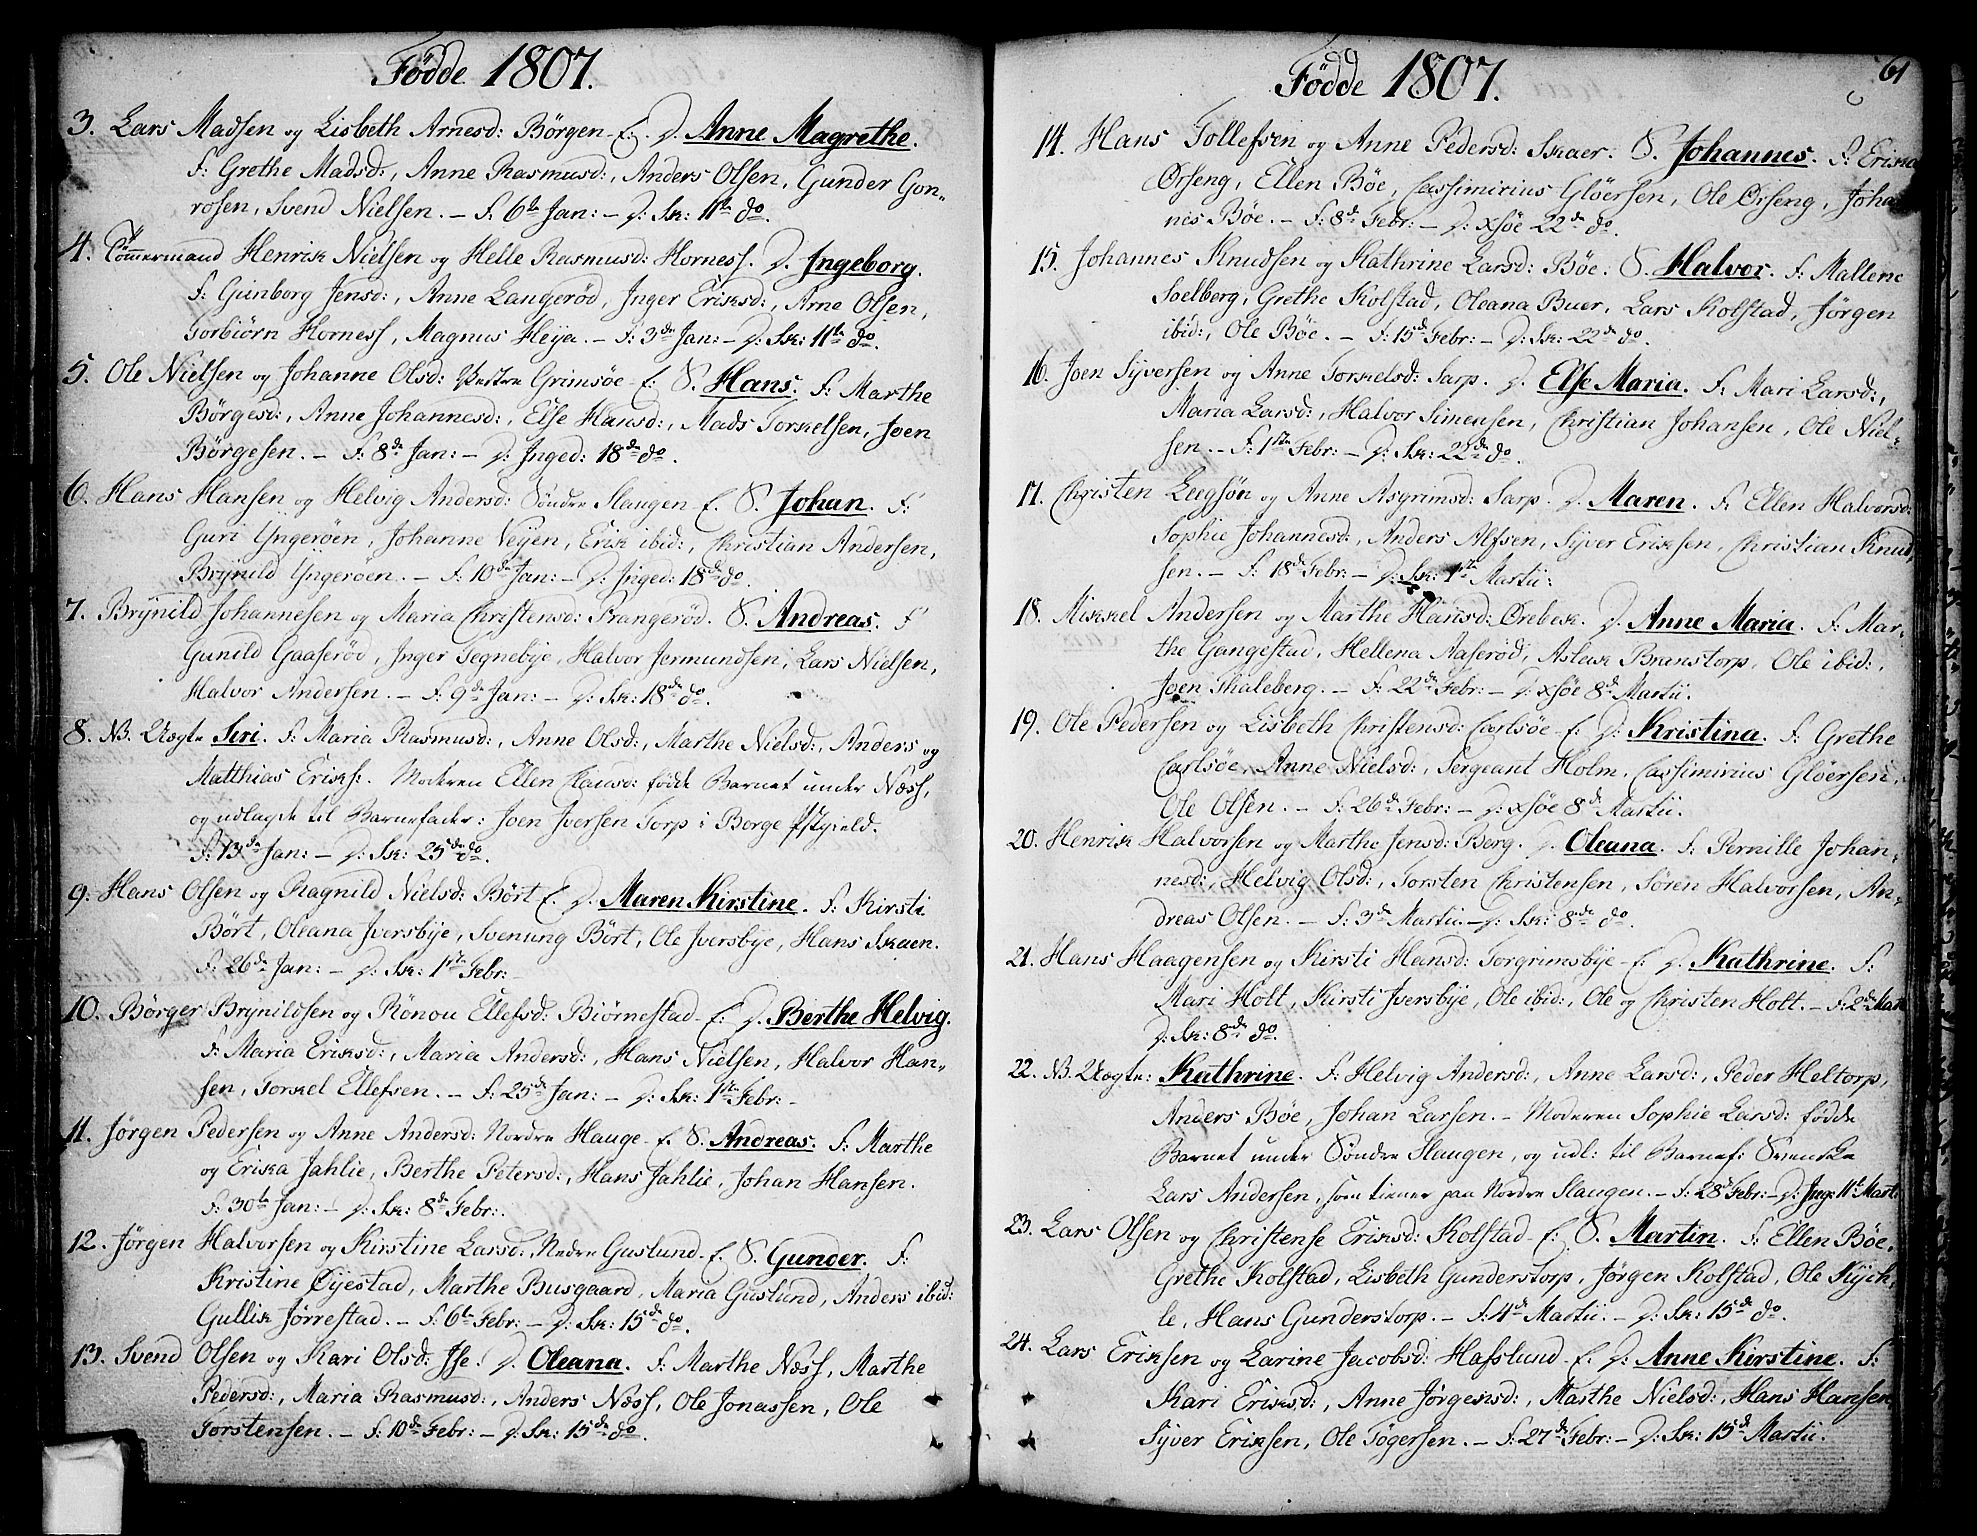 Födde 1807.
3. Lars Madsen og Lisbeth Arnesd: Börgen E. D. Anne Magrethe.
F: Grethe Madsd:, Anne Rasmusd:, Anders Olsen, Gunder Gon-
rosen, Svend Nielsen. – F. 6te Jan: – D: Sk: 11te do.
4. Tömmermand Henrik Nielsen og Helle Rasmusd: Horness. D. Ingeborg.
F: Gunborg Jensd:, Anne Langeröd, Inger Eriksd:, Arne Olsen,
Torbiörn Horness, Magnus Heya. – F: 3de Jan: – D: Sk: 11te do.
5. Ole Nielsen og Johanne Olsd: Vestre Grimsöe E: S. Hans. F: Marthe
Börgesd:, Anne Johannesd:, Else Hansd:, Mads Torkelsen, Joen
Börgesen. – F: 8de Jan: – D: Inged: 18de do.
6. Hans Hansen og Helvig Andersd: Söndre Slaugen E. S. Johan. F:
Guri Yngeröen, Johanne Veyen, Erik ibid:, Christian Andersen,
Brynild Yngeröen. – F. 10de Jan: – D: Inged: 18de do.
7. Brynild Johannesen og Maria Christensd: Prangeröd. S. Andreas. F
Gunild Gaaseröd, Inger Tegnebye, Halvor Jermundsen, Lars Nielsen,
Halvor Andersen. – F: 9de Jan: – D: Sk: 18de do.
8. NB. Uægte Siri. F: Maria Rasmusd:, Anne Olsd:, Marthe Nielsd:, Anders og
Matthias Eriks:. Moderen Ellen Clausd: födde Barnet under Næss,
og udlagde til Barnefader: Joen Iversen Torp i Borge Pstgield.
F: 13de Jan: – D: Sk: 25de do.
9. Hans Olsen og Ragnild Nielsd: Bört E. D. Maren Kirstine. F: Kirsti
Bört, Oleana Iversbye, Svenung Bört, Ole Iversbye, Hans Skaen.
F: 26de Jan: – D: Sk: 1ste Febr: –
10. Börger Brynildsen og Rönou Ellefsd: Biörnestad E: D. Berthe Helvig.
F: Maria Eriksd:, Maria Andersd:, Hans Nielsen, Halvor Han-
sen, Torkel Ellefsen. – F: 25de Jan: – D: Sk: 1ste Febr: –
11. Jörgen Pedersen og Anne Andersd: Nordre Hauge E. S. Andreas. F: Marthe
og Erika Jahlie, Berthe Petersd:, Hans Jahlie, Johan Hansen.
F: 30te Jan: – D: Sk: 8de Febr:.
12. Jörgen Halvorsen og Kirstine Larsd: Nedre Guslund E. S. Gunder. F:
Kristine Öyestad, Marthe Busgaard, Maria Guslund, Anders ibid:
Gullik Jörrestad. – F: 6te Febr: – D: Sk: 15de do.
13. Svend Olsen og Kari Olsd: Ise. D. Oleana. F: Marthe Næss, Marthe
Pedersd:, Maria Rasmusd:, Anders Næss, Ole Jonassen, Ole
Torstensen. – F: 10de Febr: – D: Sk: 15de do.
Födde 1807.
61
14. Hans Tollefsen og Anne Pedersd: Skaer. S. Johannes. F: Erika
Örseng, Ellen Böe, Cassimirius Glöersen, Ole Örseng, Johan
nes Böe. – F: 8de Febr: – D: xsöe 22de do.
15. Johannes Knudsen og Kathrine Larsd: Böe. S. Halvor. F: Mallene
Soelberg, Grethe Kolstad, Oleana Buer, Lars Kolstad, Jörgen
ibid:, Ole Böe. – F: 15de Febr: – D: Sk: 22de do.
16. Joen Syversen og Anne Torkelsd: Sarp. D. Else Maria. F: Mari Larsd:,
Maria Larsd:, Halvor Simensen, Christian Johansen, Ole Niel-
sen. – F: 1ste Febr: – D: Sk: 22de do.
17. Christen Leegsön og Anne Asgrimsd: Sarp. D. Maren. F: Ellen Halvorsd:
Sophie Johannesd:, Anders Alfsen, Syver Eriksen, Christian Knud,
sen. – F: 18de Febr: – D: Sk: 1ste Martii:
18. Mikkel Andersen og Marthe Hansd: Örebek. D. Anne Maria. F: Mar-
the Gangestad, Hellena Aaseröd, Aslak Branstorp, Ole ibid:,
Joen Thaleberg. – F: 22de Febr: – D: xsöe 8de Martii.
19. Ole Pedersen og Lisbeth Christensd: Carlsöe E: D: Kristina. F: Grethe
Carlsöe, Anne Nielsd:, Sergeant Holm, Cassimirius Glöersen,
Ole Olsen. – F: 26de Febr: – D: xsöe 8de Martii.
20. Henrik Halvorsen og Marthe Jensd: Berg. D. Oleana. F: Pernille Johan,
nesd:, Helvig Olsd:, Torsten Christensen, Sören Halvorsen, An,
dreas Olsen. – F: 3de Martii. – D: Sk: 8de do.
21. Hans Haagensen og Kirsti Hansd: Torgrimsbye E: D. Kathrine. F:
Mari Holt, Kirsti Iversbye, Ole ibid:, Ole og Christen Holt. – F: 2de Mart
D: Sk: 8de do.
22. NB. Uægte: Kathrine. F: Helvig Andersd:, Anne Larsd:, Peder Heltorp,
Anders Böe, Johan Larsen. – Moderen Sophie Larsd: födde
Barnet under Söndre Slaugen, og udl: til Barnef: Svenske
Lars Andersen, som tiener paa Nordre Slaugen. – F: 28de Febr: – D: Ing: 11te Mart:
23. Lars Olsen og Christense Eriksd: Kolstad E: S. Martin. F: Ellen Böe,
Grethe Kolstad, Lisbeth Gunderstorp, Jörgen Kolstad, Ole Kych,
le, Hans Gunderstorp. – F: 4de Martii. – D: Sk: 15de do.
24. Lars Eriksen og Larine Jacobsd: Hafslund E. D: Anne Kirstine. F:
Kari Eriksd:, Anne Jörgensd:, Marthe Nielsd:, Hans Hansen
Syver Eriksen, Ole Tögersen. – F: 27de Febr: – D: Sk: 15de Martii.